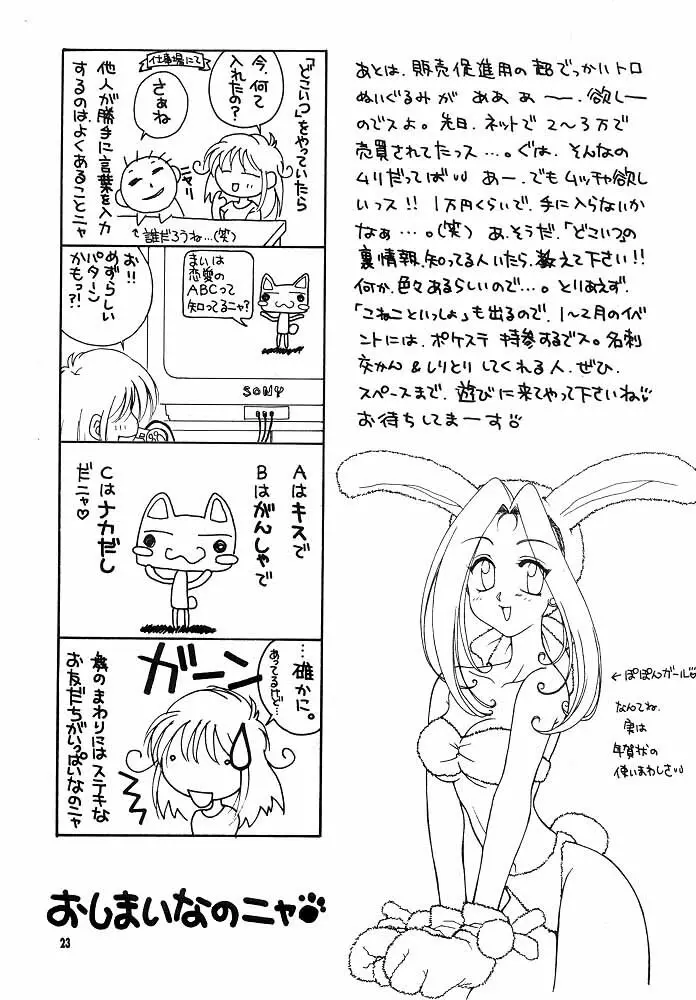 「どこいつ」をやっていたら
他人が勝手に言葉を入力
するのは、よくあることニャ
仕事場にて
今、何て
入れたの?
さぁね
ニヤリ
↑誰だろうね…(笑)
まいは
恋愛の
ABCって
知ってるニャ?
お!!
めずらしい
パターン
かもっ?!
SONY
Aはキスで
Bはがんしゃで
Cはナカだし
だニャ♡
…確かに。
あってるけど…
ガーン
僕のまわりにはステキな
お友だちがいっぱいなのニャ
おしまいなのニャ
23
あとは、販売促進用の超でっかいトロ
ぬいぐるみが ああ ぁ 〜 、欲しー
のでスよ。先日、ネットで 2〜3万で
売買されてたっス…。ぐは、そんなの
ムリだってばい あー、でもムッチャ欲し
いっス!! 1万円くらいで、手に入らないか
なぁ…。(笑) あ、そうだ、「どこいつ」の
裏情報、知ってる人いたら、教えて下さい!!
何か、色々あるらしいので…。とりあえず、
「こねこといっしょ」も出るので、1〜2月のイベ
ントには、ポケステ 持参するでス。名刺
交かん & しりとり してくれる人、ぜひ、
スペースまで、遊びに来てやって下さいね♡
お待ちしてまーす
←ぽぽんガール♡
なんてね、
実は
年賀状の
使いまわしさ